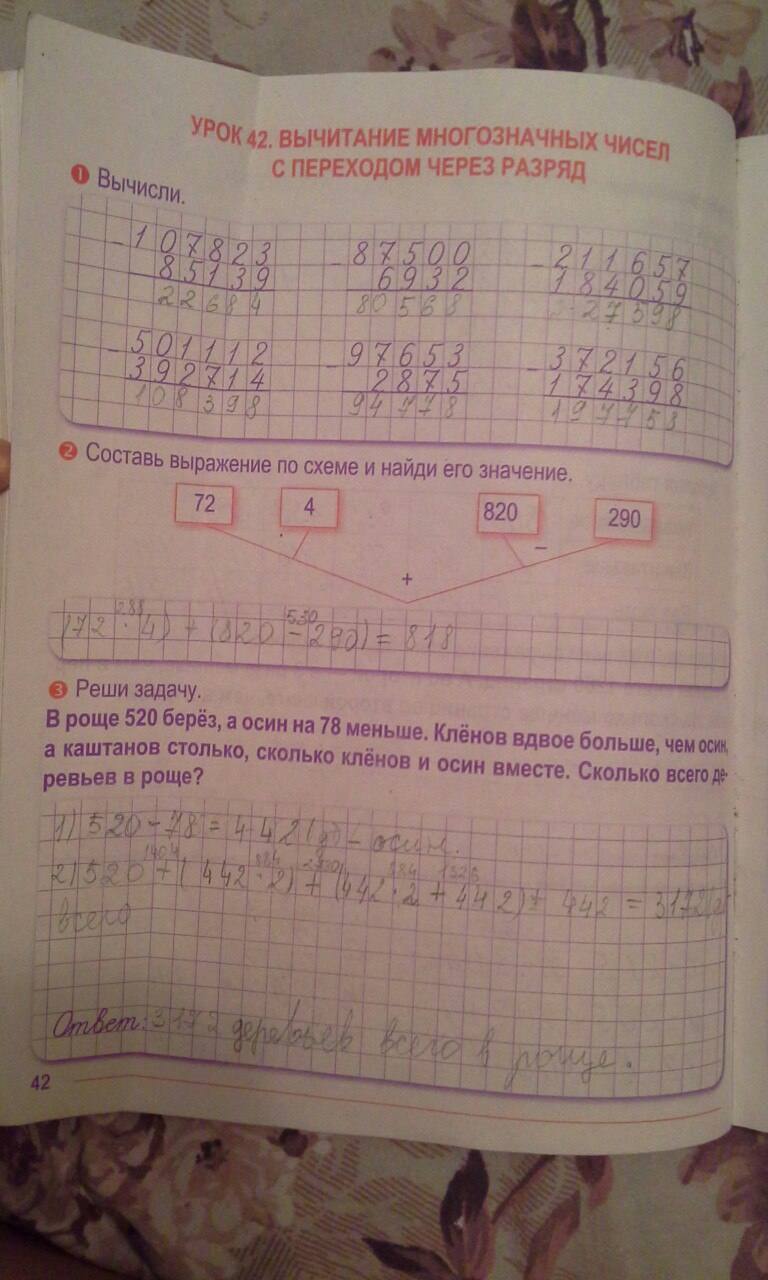 УРОК 42. ВЫЧИТАНИЕ МНОГОЗНАЧНЫХ ЧИСЕЛ
С ПЕРЕХОДОМ ЧЕРЕЗ РАЗРЯД
1 Вычисли.
- 107823 - 87500 - 211657
85139 6932 184059
22684 80568 27598
- 501112 - 97653 - 372156
392714 2875 174398
108398 94778 197758
2 Составь выражение по схеме и найди его значение.
72 4 820 290
–
+
288 530
(72 · 4) + (820 - 290) = 818
3 Реши задачу.
В роще 520 берёз, а осин на 78 меньше. Клёнов вдвое больше, чем осин,
а каштанов столько, сколько клёнов и осин вместе. Сколько всего де-
ревьев в роще?
1) 520 - 78 = 442 (д) - осин.
1404 884 2730 884 1326
2) 520 + (442 · 2) + (442 · 2 + 442) + 442 = 3172 (д)
всего
Ответ: 3172 деревьев всего в роще.
42